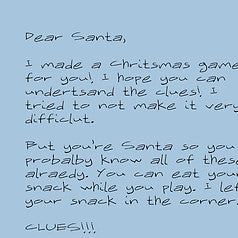 Dear Santa,
I made a Chritsmas game
for you! I hope you can
undertsand the clues! I
tried to not make it very
difficlut.
But you're Santa so you
probalby know all of these
alraedy. You can eat your
snack while you play. I left
your snack in the corner.
CLUES!!!